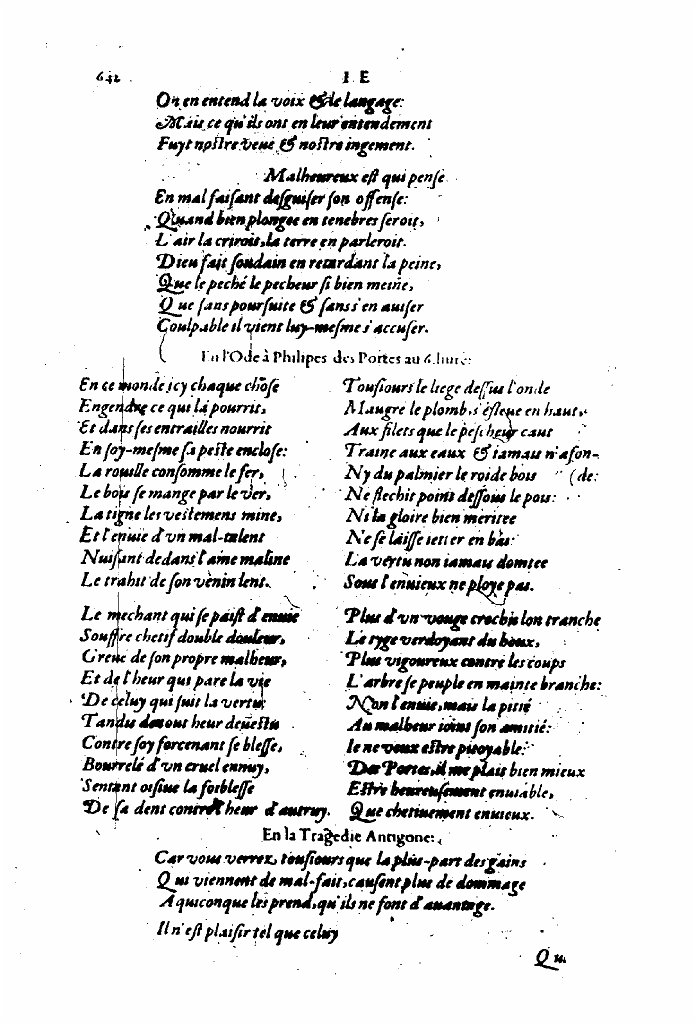 642
I E
On en entend la voix & de langage:
Mais ce qu'ils ont en leur entendement
Fuyt nostre veue & nostre iugement.
Malheureux est qui pense
En mal faisant desguiser son offense:
Quand bien plongee en tenebres seroit,
L'air la criroit, la terre en parleroit.
Dieu fait soudain en retardant la peine,
Que le peché le pecheur si bien meine,
Que sans poursuite & sans s'en auiser
Coulpable il vient luy-mesme s'accuser.
En l'Ode à Philipes des Portes au 6. liure:
En ce monde icy chaque chose
Engendre ce qui la pourrit,
Et dans ses entrailles nourrit
En soy-mesme sa peste enclose:
La rouille consomme le fer,
Le bois se mange par le ver,
La tigne les vestemens mine,
Et l'enuie d'vn mal-talent
Nuisant dedans l'ame maline
Le trahit de son venin lent.
Le mechant qui se paist d'enuie
Souffre chetif double douleur,
Greué de son propre malheur,
Et de l'heur qui pare la vie
De celuy qui suit la vertu:
Tandis de tout heur deuestu
Contre soy forcenant se blesse,
Bourrelé d'vn cruel ennuy,
Sentant oisiue la foiblesse
De sa dent contre l'heur d'autruy.
Tousiours le liege dessus l'onde
Maugre le plomb, s'esleue en haut,
Aux filets que le pescheur caut
Traine aux eaux & iamais n'afon-
Ny du palmier le roide bois (de:
Ne flechit point dessous le pois:
Ni la gloire bien meritee
Ne se laisse ietter en bas:
La vertu non iamais domtee
Sous l'enuieux ne ploye pas.
Plus d'vn vouge crochis lon tranche
Le tyge verdoyant du houx,
Plus vigoureux contre les coups
L'arbre se peuple en mainte branche:
Non l'enuie, mais la pitié
Au malheur ioint son amitié:
Ie ne veux estre pitoyable:
Des Portes, il me plait bien mieux
Estre heureusement enuiable,
Que chetiuement enuieux.
En la Tragedie Antigone:
Car vous verrez, tousiours que la plus-part des gains
Qui viennent de mal-fait, causent plus de dommage
A quiconque les prend, qu'ils ne font d'auantage.
Il n'est plaisir tel que celuy
Qu.